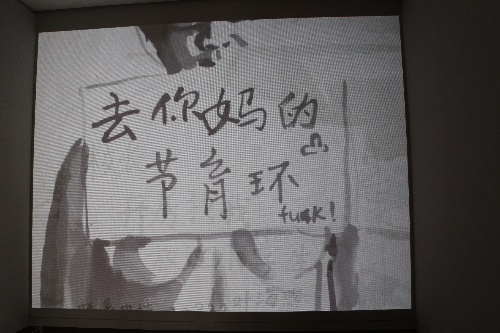 去你妈的
节育环
fuck!